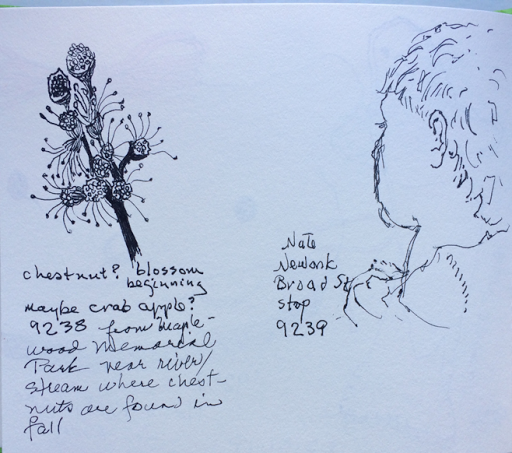 chestnut? blossom
beginning
maybe crab apple?
9238 from Maple-
wood Memorial
Park near river/
stream where chest-
nuts are found in
fall
Nate
Newark
Broad St
stop
9239